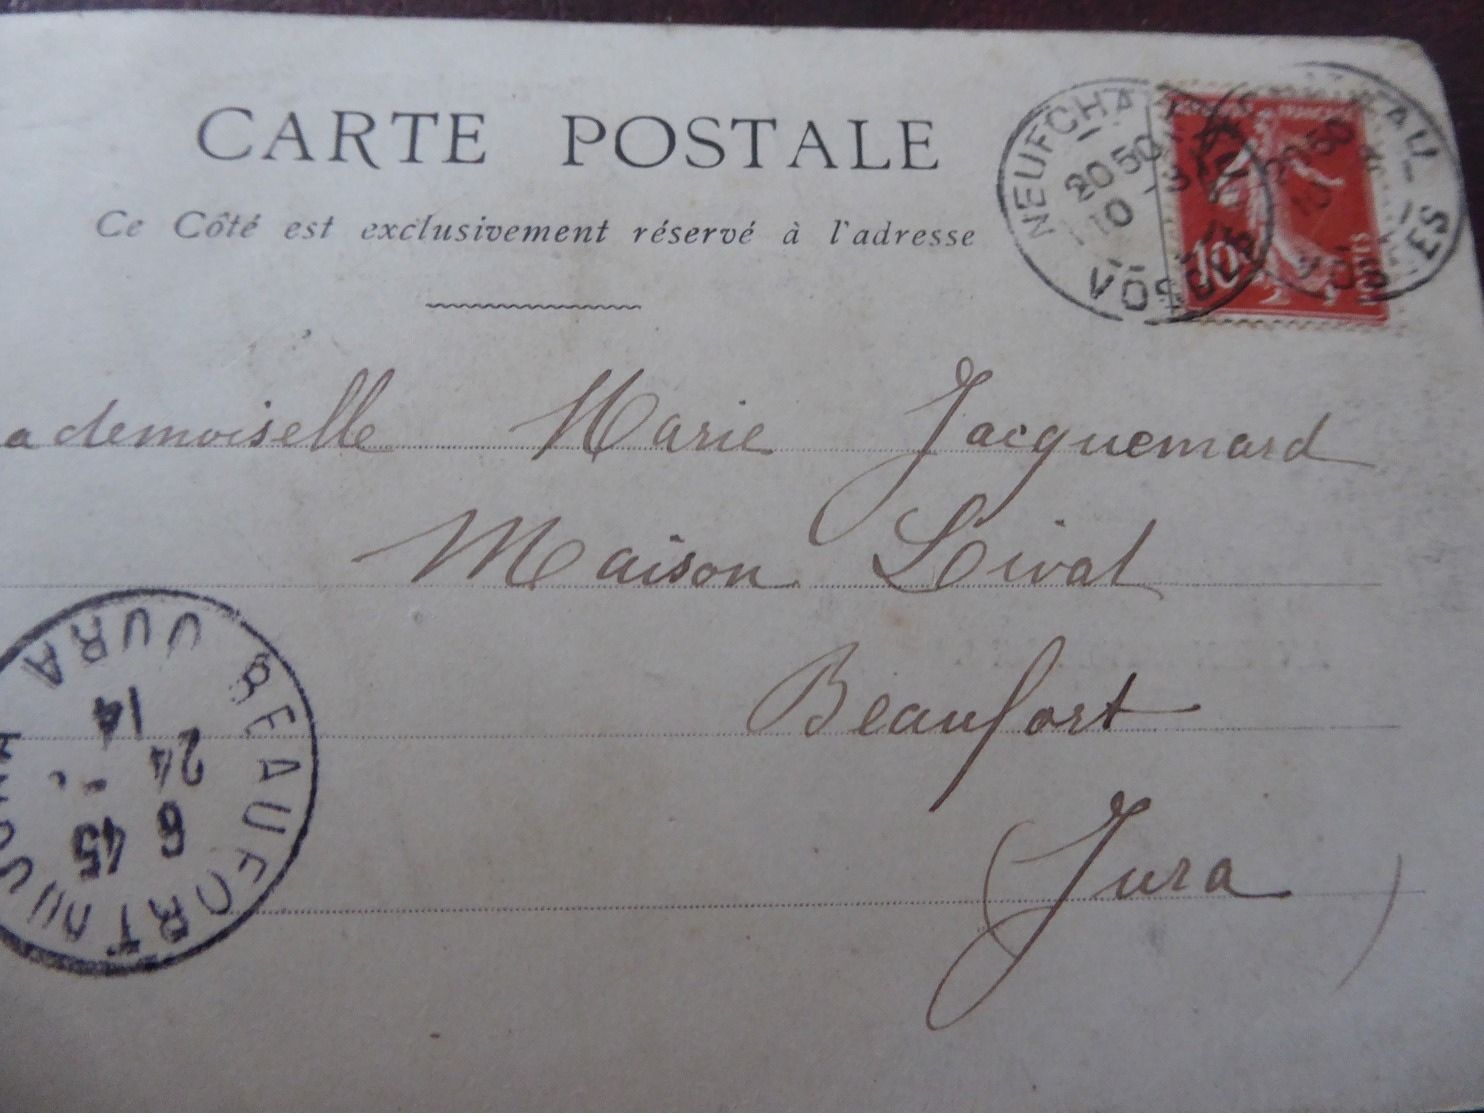 CARTE POSTALE
Ce Côté est exclusivement réservé à l'adresse
NEUFCHA
20 50
10
VOSGES
EAU
VOSGES
10
POSTES
ademoiselle Marie Jacquemard
Maison Lival
Beaufort
(Jura)
BEAUFORT DU JURA
JURA
6 45
24
14